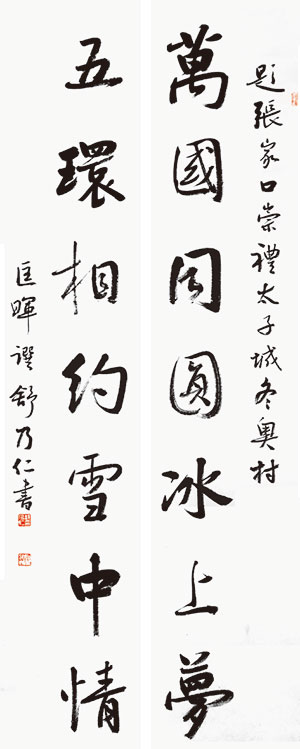 題張家口崇禮太子城冬奧村
萬國同圓冰上夢
五環相約雪中情
匡暉譔舒乃仁書